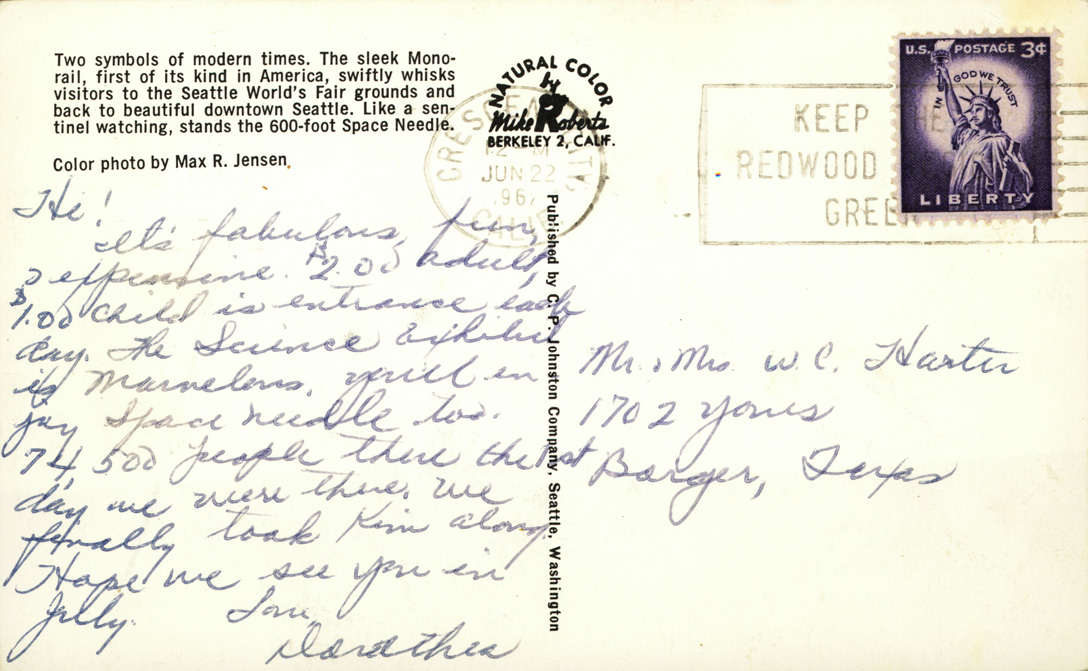 Two symbols of modern times. The sleek Mono-
rail, first of its kind in America, swiftly whisks
visitors to the Seattle World's Fair grounds and
back to beautiful downtown Seattle. Like a sen-
tinel watching, stands the 600-foot Space Needle.
Color photo by Max R. Jensen.
NATURAL COLOR
by
Mike Roberts
BERKELEY 2, CALIF.
CRESCENT CITY,
JUN 22
CALIF.
KEEP
REDWOOD
GREEN
U.S. POSTAGE 3¢
IN GOD WE TRUST
LIBERTY
Hi!
It's fabulous, fun,
& expensive. $2.00 adult,
$1.00 child is entrance each
day. The Science Exhibit
is Marvelous. you'll en
joy Space needle too.
74,500 people there the 1st
day we were there. We
finally took Kim along.
Hope we see you in
July.
Love,
Dorothea
Published by C. P. Johnston Company, Seattle, Washington
Mr. & Mrs. W.C. Harter
1702
Borger, Texas